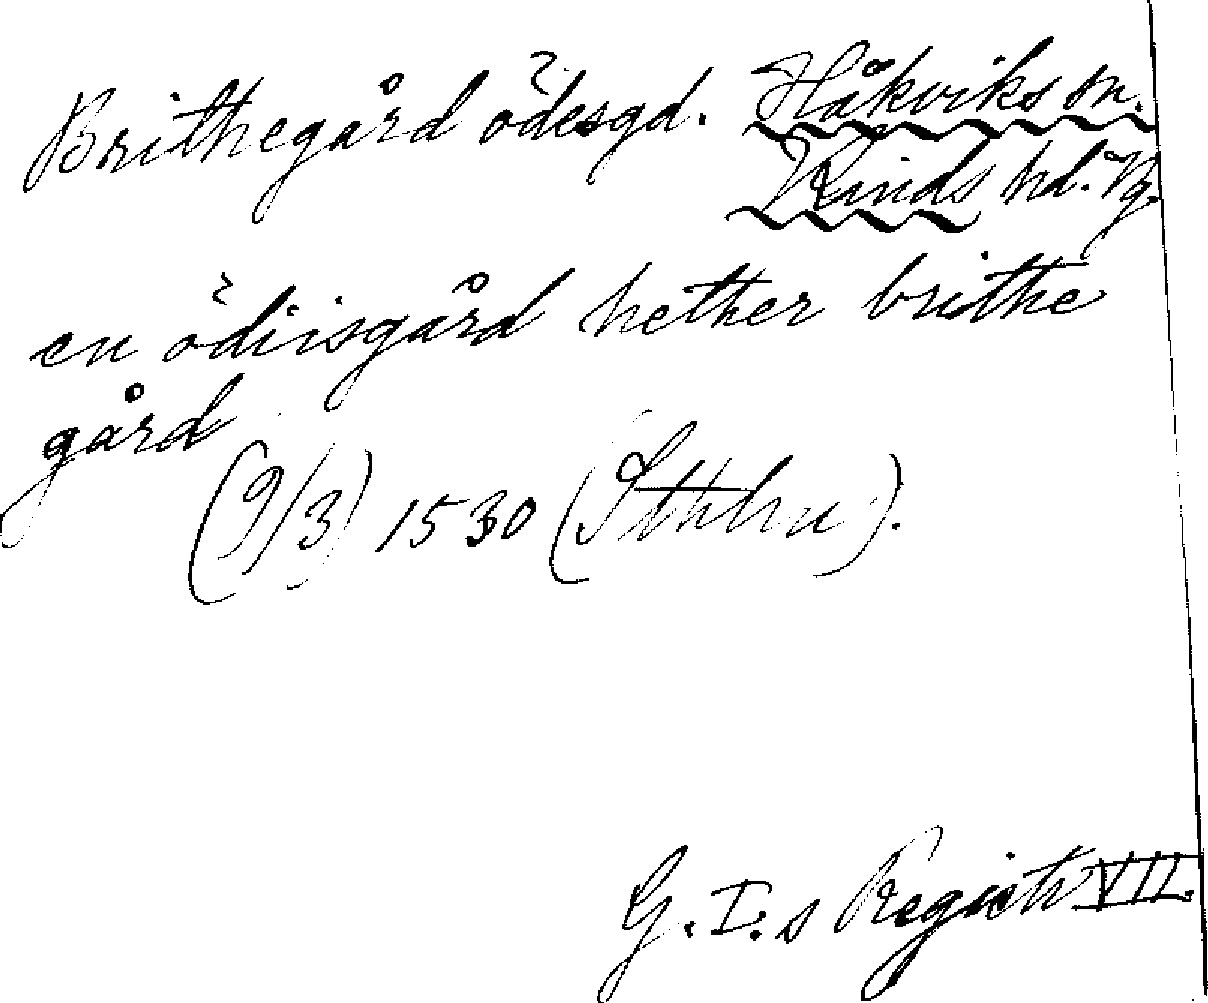 Brithegård ödesgd. Håkviks sn.
Kinds hd. Vg.
en ödiisgård hether brithe
gård
(9/3) 1530 (Sthlm).
G. I:s Registr VII.